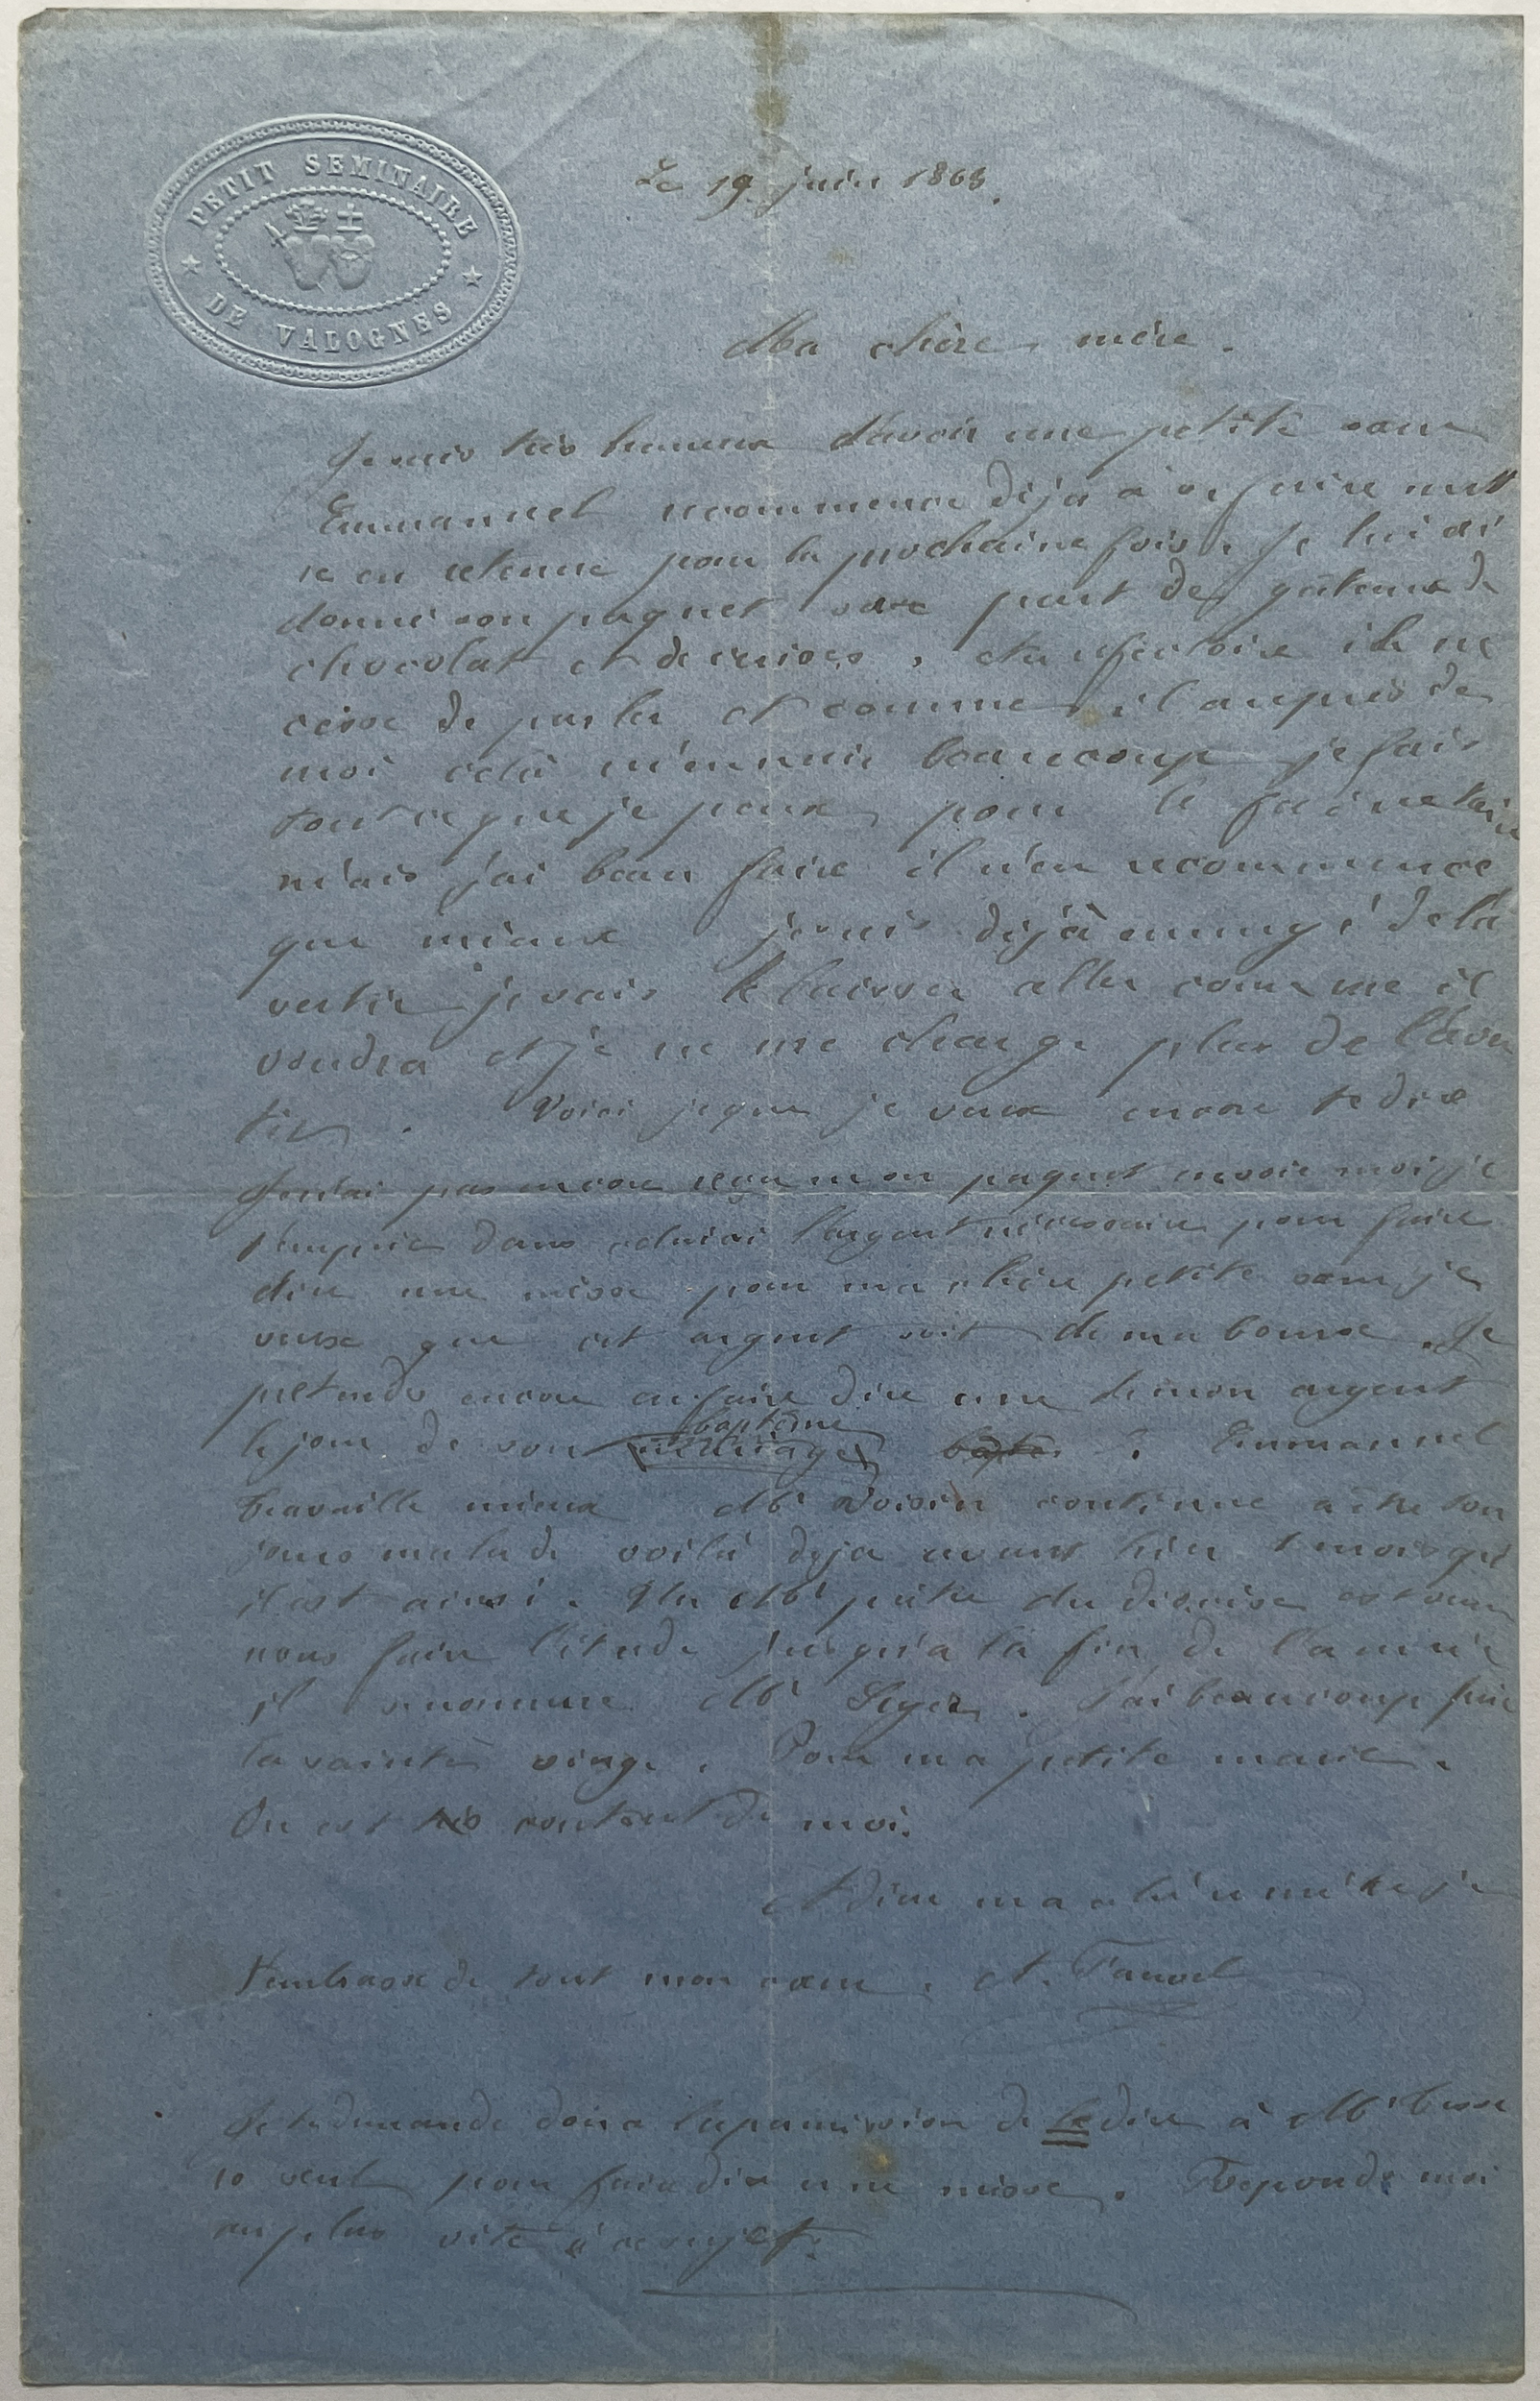 PETIT SEMINAIRE
DE VALOGNES
Le 19 juin 1868.
Ma chère mère.
Je suis très heureux d'avoir une petite sœur
Emmanuel recommence déjà à se faire mett
re en retenue pour la prochaine fois. Je lui ai
donné son paquet sa part de gâteaux de
chocolat et de cerises. Au refectoire il ne
cesse de parler et comme il auprès de
moi cela m'ennuie beaucoup je fais
tout ce que je peux pour le faire taire
mais j'ai beau faire il n'en recommence
que mieux je suis déjà ennuyé de l'a
vertir je vais le laisser aller comme il
voudra et je ne me charge plus de l'aver
tir. Voici ce que je veux encore te dire
Je n'ai pas encore reçu mon paquet envoie moi je
t'en prie dans celui ci l'argent nécessaire pour faire
dire une messe pour ma chère petite sœur je
veux que cet argent soit de ma bourse. Je
prétends encore en faire dire une de mon argent
baptême
le jour de son mariage bapte. Emmanuel
travaille mieux Mr Voisin continue a être tou
jours malade voilà deja avant hier 1 mois qu'
il est ainsi. Un Mr prêtre du diocèse est venu
nous faire l'étude jusqu'a la fin de l'année
il se nomme Mr Leger. J'ai beaucoup prié
la sainte vierge. Pour ma petite marie.
On est très content de moi.
Adieu ma chère mère je
t'embrasse de tout mon cœur. A. Fauvel
Je te demande donc la permission de le dire à Mr
se veut pour faire dire une messe. Reponds moi
au plus vite à ce sujet.